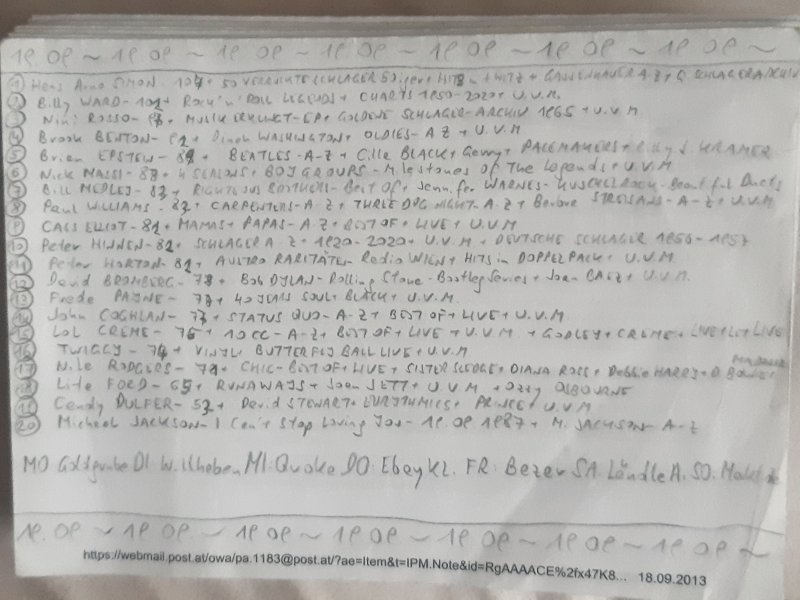 19 09 ~ 19 09 ~ 19 09 ~ 19 09 ~ 19 09 ~ 19 09 ~ 19 09 ~
① Hans Arno SIMON - 104 + 50 VERRÜCKTE SCHLAGER + HITS WITZ + GASSENHAUER A-Z + SCHLAGERARCHIV
② Billy WARD - 102 + Rock'n'ROLL LEGENDS + CHARTS 1950-2020 + U.V.M.
③ Nini ROSSO - + MUSIK ERKLINGT - EP + GOLDENE SCHLAGER-ARCHIV 1965 + U.V.M
④ Brook BENTON - 92 + Dinah WASHINGTON + OLDIES - A-Z + U.V.M
⑤ Brian EPSTEIN - 89 + BEATLES - A-Z + Cilla BLACK + Gerry + PACEMAKERS + Billy J. KRAMER
⑥ Nick MASSI - 87 + 4 SEASONS + BOYGROUPS - Milestones OF The Legends + U.V.M
⑦ Bill MEDLEY - 83 + RIGHTEOUS BROTHERS - Best Of + Jennifer WARNES - KUSCHELROCK - Beautiful Duets
⑧ Paul WILLIAMS - 83 + CARPENTERS - A-Z + THREE DOG NIGHT - A-Z + Barbra STREISAND - A-Z + U.V.M
⑨ CASS ELLIOT - 82 + MAMAS + PAPAS - A-Z + BEST OF + LIVE + U.V.M
⑩ Peter HINNEN - 82 + SCHLAGER A-Z + 1920-2020 + U.V.M + DEUTSCHE SCHLAGER 1956-1957
⑪ Peter HORTON - 82 + AUSTRO RARITÄTEN - Radio WIEN + HITS in DOPPELPACK + U.V.M.
⑫ David BROMBERG - 78 + Bob DYLAN - Rolling Stone - Bootleg Series + Joan BAEZ + U.V.M.
⑬ Freda PAYNE - 77 + 40 YEARS SOUL + BLACK + U.V.M.
⑭ John COGHLAN - 77 + STATUS QUO - A-Z + BEST OF + LIVE + U.V.M.
⑮ LOL CREME - 76 + 10CC - A-Z + BEST OF + LIVE + U.V.M. + GODLEY + CREME + LIVE + LET LIVE
⑯ TWIGGY - 74 + VINYL BUTTERFLY BALL LIVE + U.V.M
⑰ Nile RODGERS - 71 + CHIC - BEST OF + LIVE + SISTER SLEDGE + DIANA ROSS + Debbie HARRY + D. BOWIE + MADONNA
⑱ Lita FORD - 65 + RUNAWAYS + Joan JETT + U.V.M + Ozzy OSBOURNE
⑲ Candy DULFER - 53 + David STEWART + EURYTHMICS + PRINCE + U.V.M
⑳ Michael JACKSON - I Can't Stop Loving You - 19.09 1987 + M. JACKSON - A-Z
MO Goldgrube DI W.llhaben MI: Quoka DO: Ebay Kl. FR: Bazar SA. Ländle A. SO. Markt.de
19. 09 ~ 19 09 ~ 19 09 ~ 19 09 ~ 19 09 ~ 19 09 ~ 19 09 ~
https://webmail.post.at/owa/pa.1183@post.at/?ae=Item&t=IPM.Note&id=RgAAAACE%2fx47K8... 18.09.2013